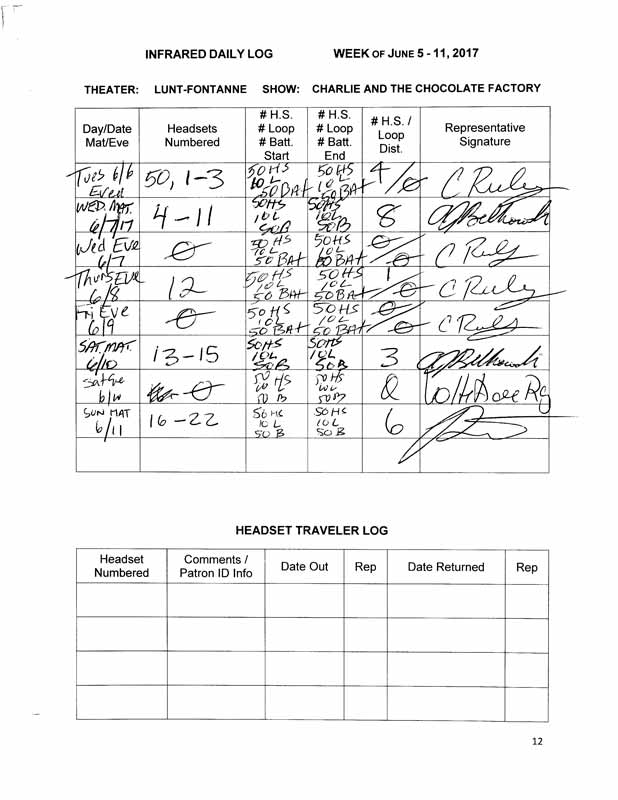 INFRARED DAILY LOG WEEK OF JUNE 5 - 11, 2017
THEATER: LUNT-FONTANNE SHOW: CHARLIE AND THE CHOCOLATE FACTORY
Day/Date Mat/Eve Headsets Numbered # H.S. # Loop # Batt. Start # H.S. # Loop # Batt. End # H.S. / Loop Dist. Representative Signature
Tues 6/6 50, 1-3 50HS 10L 50BAT 50HS 10L 50BAT 4/0 C Ruley
WED. MAT. 6/7/17 4-11 50HS 10L 50B 50HS 10L 50B 8
Wed Eve 6/7 0 50HS 10L 50BAT 50HS 10L 50BAT 0/0 C Ruley
Thurs EVE 6/8 12 50HS 10L 50BAT 50HS 10L 50BAT 1/0 C Ruley
Fri Eve 6/9 0 50HS 10L 50BAT 50HS 10L 50BAT 0/0 C Ruley
SAT. MAT. 6/10 13-15 50HS 10L 50B 50HS 10L 50B 3
Sat Eve 0 50 HS 50 B 50 HS 50B 0
SUN MAT 6/11 16-22 50 HS 10 L 50 B 50 HS 10 L 50 B 6
HEADSET TRAVELER LOG
Headset Numbered Comments / Patron ID Info Date Out Rep Date Returned Rep
12